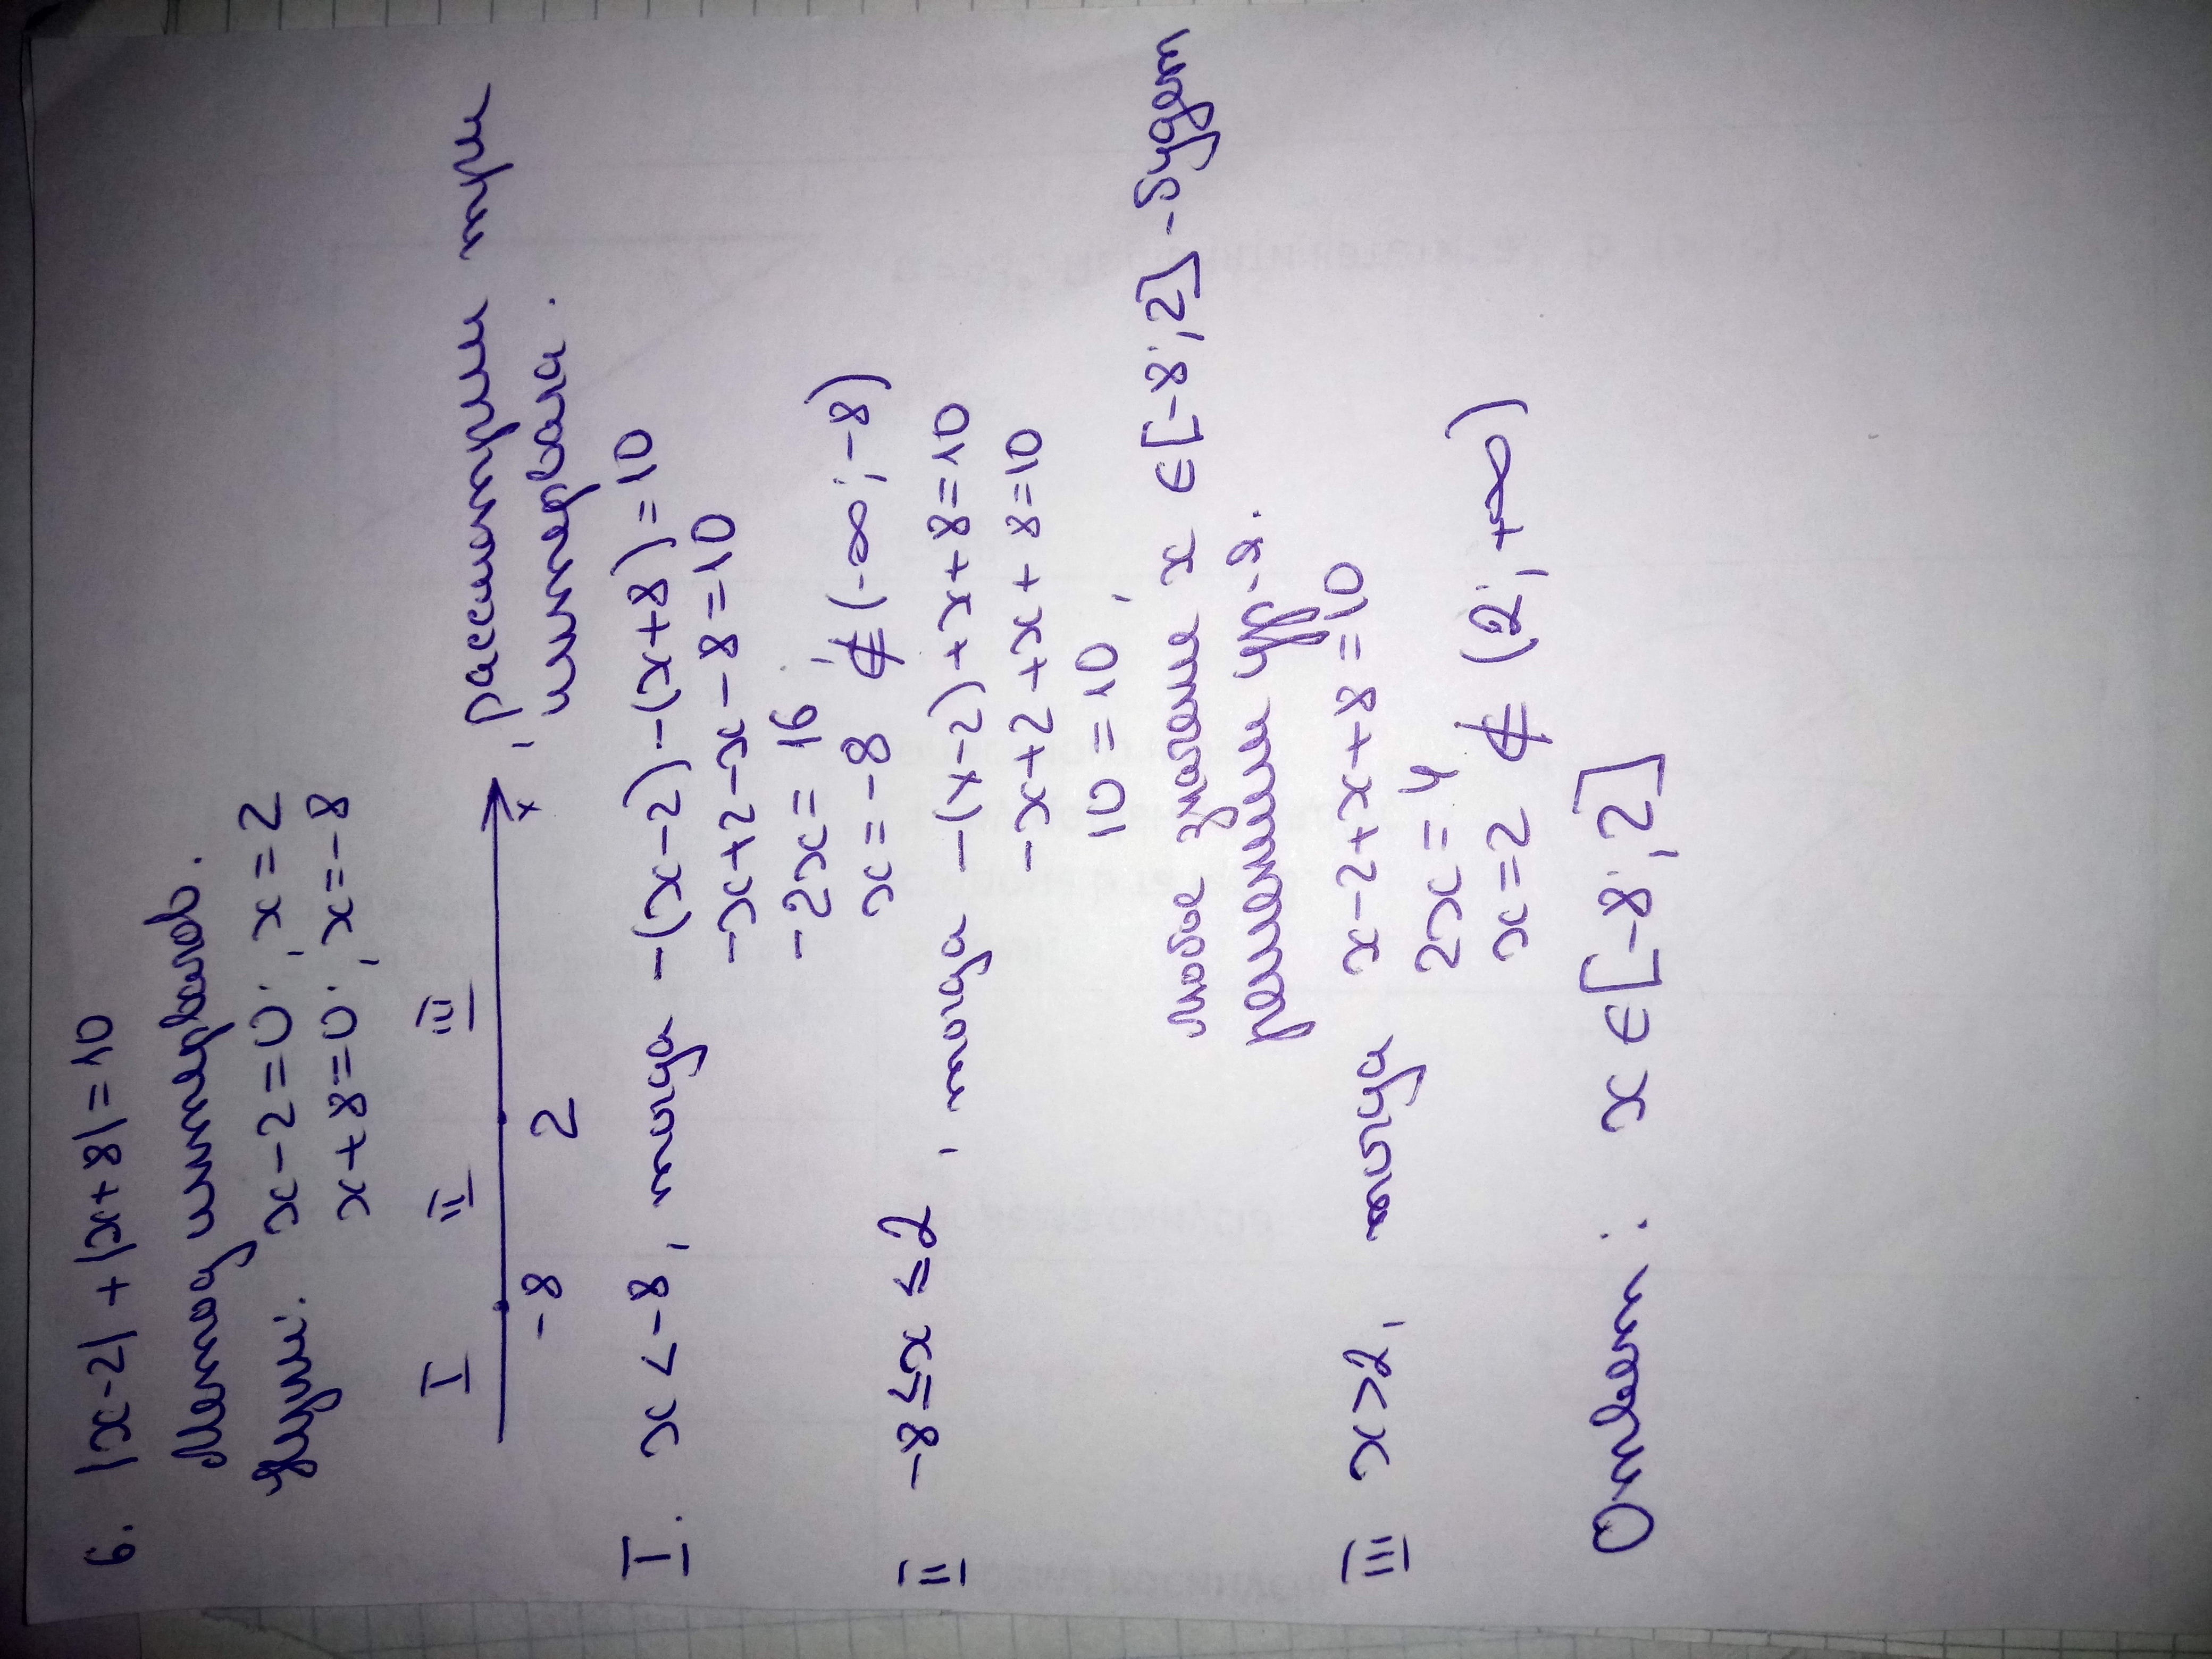 6. |x-2| + |x+8| = 10
Метод интервалов.
Нули: x-2=0; x=2
x+8=0; x=-8
I II III
-8 2 x , рассмотрим три
интервала.
I. x < -8, тогда -(x-2)-(x+8)=10
-x+2-x-8=10
-2x=16;
x=-8 ∉ (-∞; -8)
II -8≤x≤2, тогда -(x-2)+x+8=10
-x+2+x+8=10
10=10;
любое значение x ∈[-8;2] - будет
решением ур-я.
III x>2, тогда x-2+x+8=10
2x=4
x=2 ∉ (2; +∞)
Ответ: x ∈[-8;2]